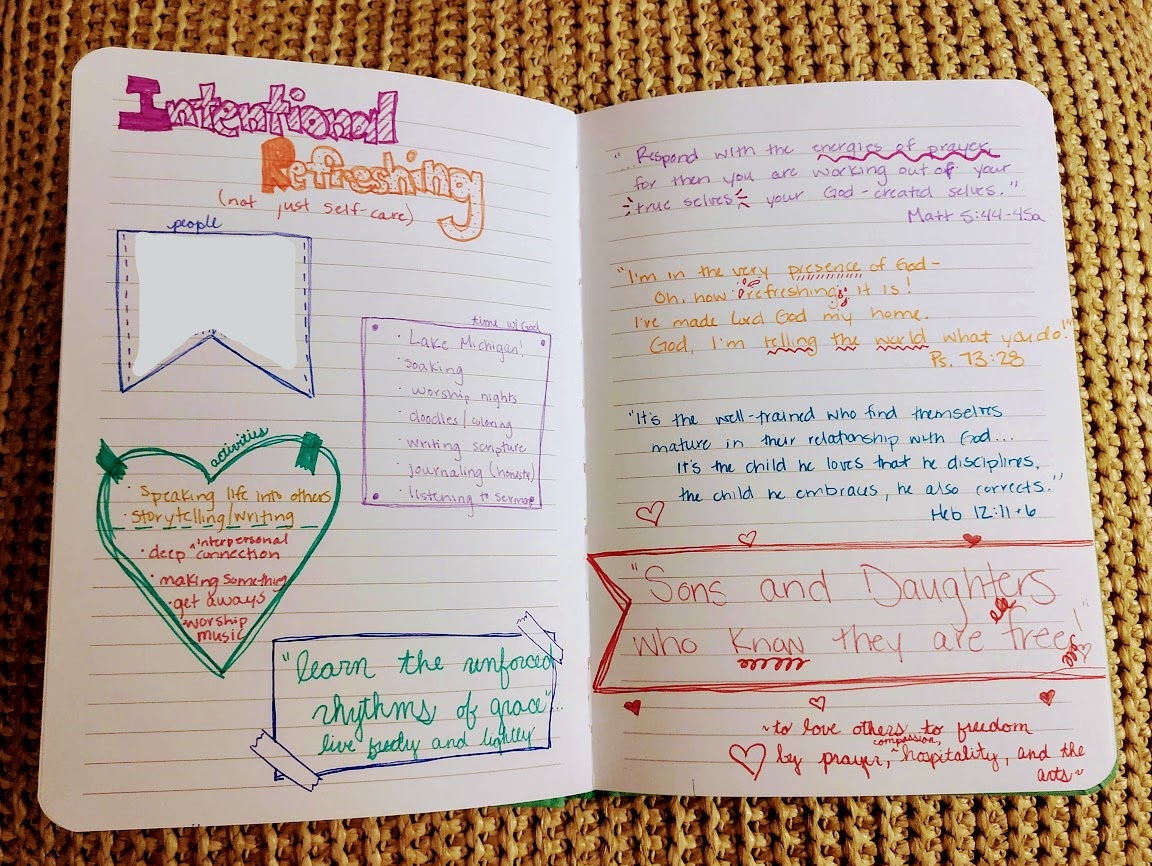 Intentional
Refreshing
(not just self-care)
people
time w/ God
· Lake Michigan!
· soaking
· worship nights
· doodles/coloring
· writing scripture
· journaling (honestly)
· listening to sermons
activities
· speaking life into others
· storytelling/writing
interpersonal
· deep ^ connection
· making something
· get aways
· worship
music
"learn the unforced
rhythms of grace"...
live freely and lightly
"...Respond with the energies of prayer
for then you are working out of your
true selves, your God-created selves."
Matt 5:44-45a
"I'm in the very presence of God-
Oh, how refreshing it is!
I've made Lord God my home.
God, I'm telling the world what you do!"
Ps. 73:28
"It's the well-trained who find themselves
mature in their relationship with God...
It's the child he loves that he disciplines,
the child he embraces, he also corrects."
Heb 12:11+6
"Sons and Daughters
who know they are free!"
~to love others to freedom
compassion,
by prayer, ^ hospitality, and the
arts~